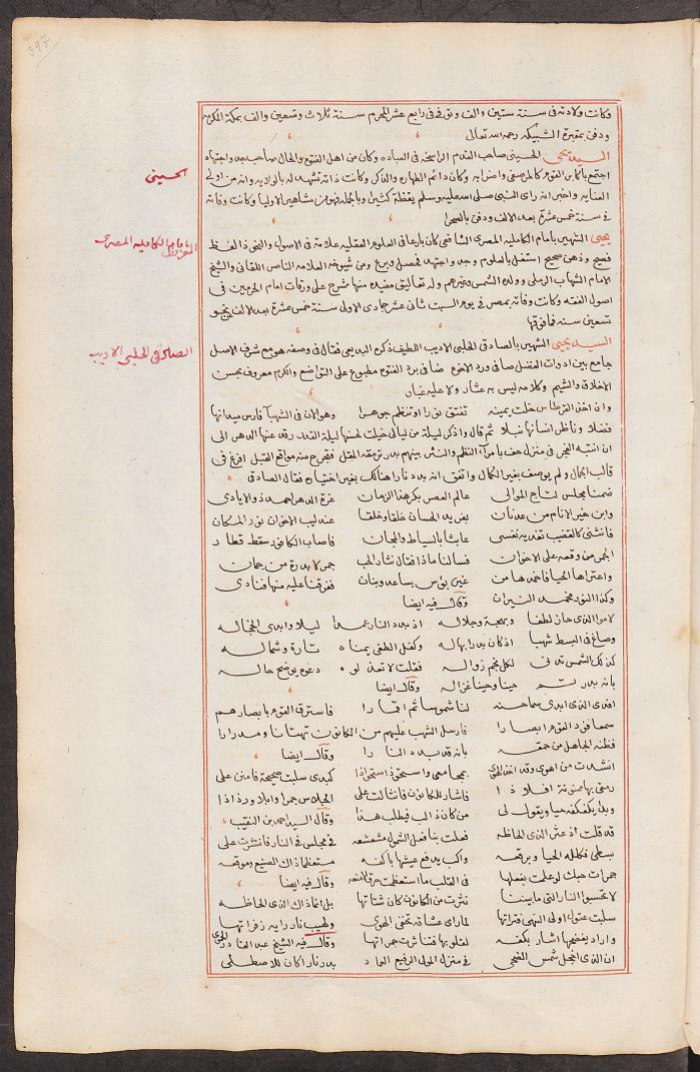 397
وكانت ولادته فى سنة ستين والف وتوفى فى رابع عشر المحرم سنة ثلاث وتسعين والف بمكة المكرمه
ودفن بمقبرة الشبيكه رحمه الله تعالى
السيد يحيى الحسينى صاحب القدم الراسخة فى العباده وكان من اهل الفتوه والحال صاحب جد واجتهاد
الحسينى
اجتمع باكابر القوم وكان دائم الطهاره والذكر وكانت ذاته تشهد له بالولايه وانه من اولى
العنايه واخبر انه راى النبى صلى الله عليه وسلم يقظة كثيرا وبالجملة فهو من مشاهير الاوليا وكانت وفاته
فى سنة خمس عشرة بعد الالف ودفن بالصحرا
يحيى الشهير بامام الكامليه المصرى الشافعى كان بارعا فى العلوم العقليه علامة فى الاصول والنحو ذا لفظ
امام الكامليه المصرى
فصيح وذهن صحيح اشتغل بالعلوم وجد واجتهد فحصل وبرع ومن شيوخه العلامه الناصر اللقانى والشيخ
الامام الشهاب الرملى وولده الشمس وغيرهم وله تعاليق مفيده منها شرح على ورقات امام الحرمين فى
اصول الفقه وكانت وفاته بمصر فى يوم السبت ثانى عشر جمادى الاولى سنة خمس عشرة بعد الالف بنحو
تسعين سنه فما فوقها
السيد يحيى الشهير بالصادقى الحلبى الاديب اللطيف ذكره البديعى فقال فى وصفه هو مع شرف الاصل
الصادقى الحلبى الاديب
جامع بين ادوات الفضل صافى ورد الاخوه ضافى برد الفتوه مطبوع على التواضع والكرم معروف بحسن
الاخلاق والشيم وكلامه ليس به عثار ولا عليه غبار
وان اخذ القرطاس خلت يمينه تفتق نورا وتنظم جوهرا وهو الان فى الشهبا فارس ميدانها
فضلا وناظر انسانها نبلا ثم قال واذكر ليلة من ليالى خيلت لحسنها ليلة القدر رقد عنها الدهر الى
ان انتبه الفجر فى منزل حف بامرآ النظم والنثر بينهم بدر ترمقه المقل فيجرح منه مواقع القبل افرغ فى
قالب الجمال ولم يوصف بغير الكمال واتفق انه بدد نارا هنالك بغير اختياره فقال الصادقى
ضمنا مجلس لتاج الموالى عالم العصر بكر هذا الزمان غرة الدهر احمد ذو الايادى
وابن خير الانام من عدنان بفريد الحسان خلقا وخلقا عندليب الاخوان نور المكان
فانثنى كالقضيب تفديه نفسى عابثا بالبساط والمجان فاصاب الكانون سقط
الجمر من وقعه على الاخوان فسالنا ماذا فقال نثار الحب جمر لا بدرة من جمان
واعتراها الحيا فاخمدها من غير بؤس بساعد وبنان ففرقنا عليه منها فنادى
وكذا النور مخمد النيران وقال فيه ايضا
لاموا الذى حاز لطفا وبهجة وجلاله اذ بدد النار عمدا ليلا وابدى الخجاله
وصاغ فى البسط شهبا اذ كان بدرا بهاله وكفل الطفى يمناه تارة وشماله
كذلك الشمس تدنى لكل نجم زواله فقلت لا تعذلوه دعوه يوضح حاله
بانه بدر تم حينا وحينا غزاله وقال ايضا
افدى الذى ابدى سما حسنه لنا شموسا ثم اقمارا فاسترق القوم بابصارهم
سمعا فرد القوم ابصارا فارسل الشهب عليهم من الكانون تهتانا ومدرارا
فظنه الجاهل من حمقه بانه قد بدد النارا وقال ايضا
وقال السيد احمد بن النقيب
قد قلت اذ عثر الذى الحاظه فعلت بنا فعل الشمول مشعشعه فى مجلس فى النار فانتثرت على
بسطى فكلله الحيا وبرقعه واكب يدفع عيبها باكفه مستعظما ذاك الصنيع وموقعه
جمرات حبك لو علمت بفعلها فى القلب ما استعظمت حرق الامتعه وقال فيه ايضا
لا تحسبوا النار التى ما بيننا نثرت من الكانون كان شتاتها بل انما ذاك الذى الحاظه
سلبت عقول اولى النهى فتراتها لما راى عشاقه تخفى الهوى ولهيب نار دابه زفراتها
واراد يفضحها اشار بكفه لقلوبها فتناثرت جمراتها وقال فيه الشيخ عبد القادر الحموى
ان الذى اخجل شمس الضحى فى منزل المولى الرفيع العماد بدد نارا كان للاصطلى